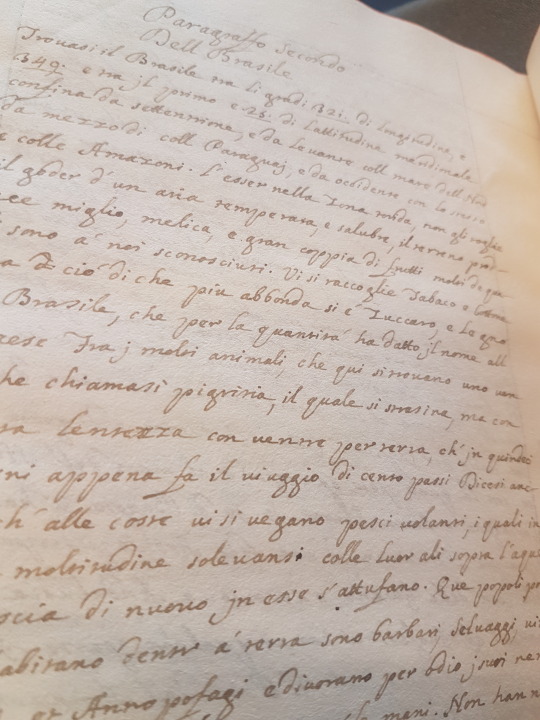 Paragraffo Secondo
Dell Brasile
Trouasi il Brasile tra li gradi 321: di longitudine, e
349: e tra jl primo e 25: di lattitudine maridionale
confina da settentrione, e da leuante coll mare dell Nord
da mezzo di coll Paraguaj, e da occidente con lo stesso
e colle Amazoni. L'esser nella Zona torrida, non gli toglie
il goder d'un aria temperata, e salubre, il terreno prod-
miglio, melica, e gran coppia di frutti molti de qua
sono a' noi sconosciuti. Vi si raccoglie Tabaco e
ciò di che piu abbonda si è Zuccaro, e le gno
Brasile, che per la quantità ha datto jl nome all
Tra j molti animali, che qui si trouano uno ven
he chiamasi pigritia, il quale si strasina, ma con
lentezza con ventre per terra, ch'jn quindei
ni appena fa il viaggio di cento passi Dicesi anc
ch'alle coste vi si vegano pesci volanti, i quali in
moltitudine soleuansi colle luor ali sopra l'aqua
scia di nuovo jn esse s'attufano. Que popoli
abitano dentr' a' terra sono barbari, seluaggi
et Antropofagi e divorano per odio j suoi ne
mani. Non han n